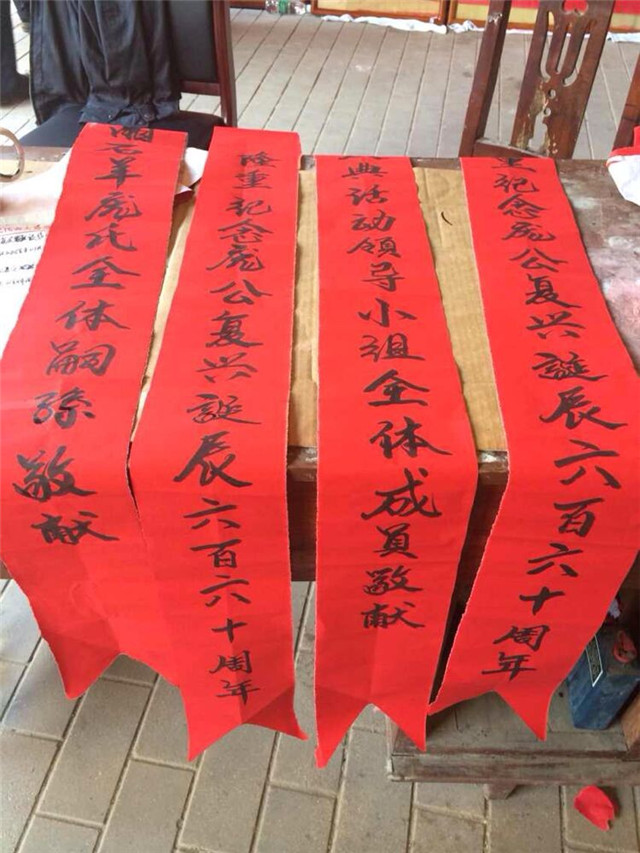 重纪念庞公复兴誕辰六百六十周年
典活动领导小组全体成员敬献
隆重纪念庞公复兴誕辰六百六十周年
石羊庞氏全体嗣孫敬献